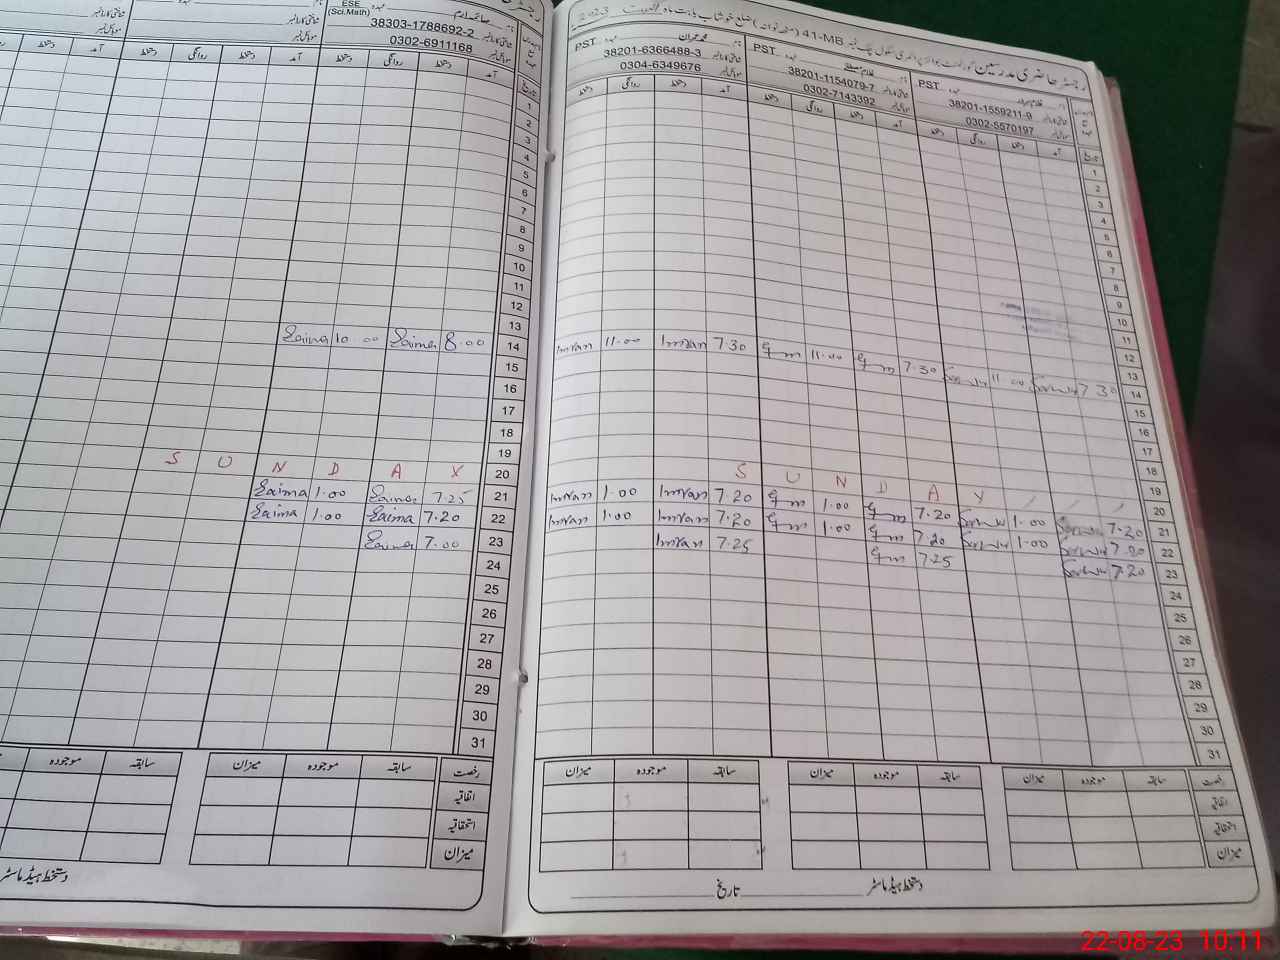 رجسٹر حاضری مدرسین گورنمنٹ بوائز پرائمری سکول چک نمبر 41-MB ضلع خوشاب بابت ماہ اگست 2023
ESE
(Sci.Math)
38303-1788692-2
0302-6911168
PST
38201-6366488-3
0304-6349676
PST
38201-1154079-7
0302-7143392
PST
38201-1559211-9
0302-5570197
دستخط روانگی دستخط آمد تاریخ
1
2
3
4
5
6
7
8
9
10
11
12
13
Zaima 10.00 Zaima 8.00 14
15
16
17
18
19
S U N D A Y 20
Zaima 1.00 Zaima 7.25 21
Zaima 1.00 Zaima 7.20 22
Zaima 7.00 23
24
25
26
27
28
29
30
31
میزان موجودہ سابقہ رخصت
اتفاقیہ
استحقاقیہ
میزان
دستخط ہیڈ ماسٹر
دستخط روانگی دستخط آمد تاریخ
1
2
3
4
5
6
7
8
9
10
11
12
13
Imran 11.00 Imran 7.30 11.00 7.30 11.00 7.30 14
15
16
17
18
19
S U N D A Y 20
Imran 1.00 Imran 7.20 1.00 7.20 1.00 7.20 21
Imran 1.00 Imran 7.20 1.00 7.20 1.00 7.20 22
Imran 7.25 7.25 7.20 23
24
25
26
27
28
29
30
31
میزان موجودہ سابقہ میزان موجودہ سابقہ میزان موجودہ سابقہ رخصت
اتفاقیہ
استحقاقیہ
میزان
دستخط ہیڈ ماسٹر تاریخ
22-08-23 10:11